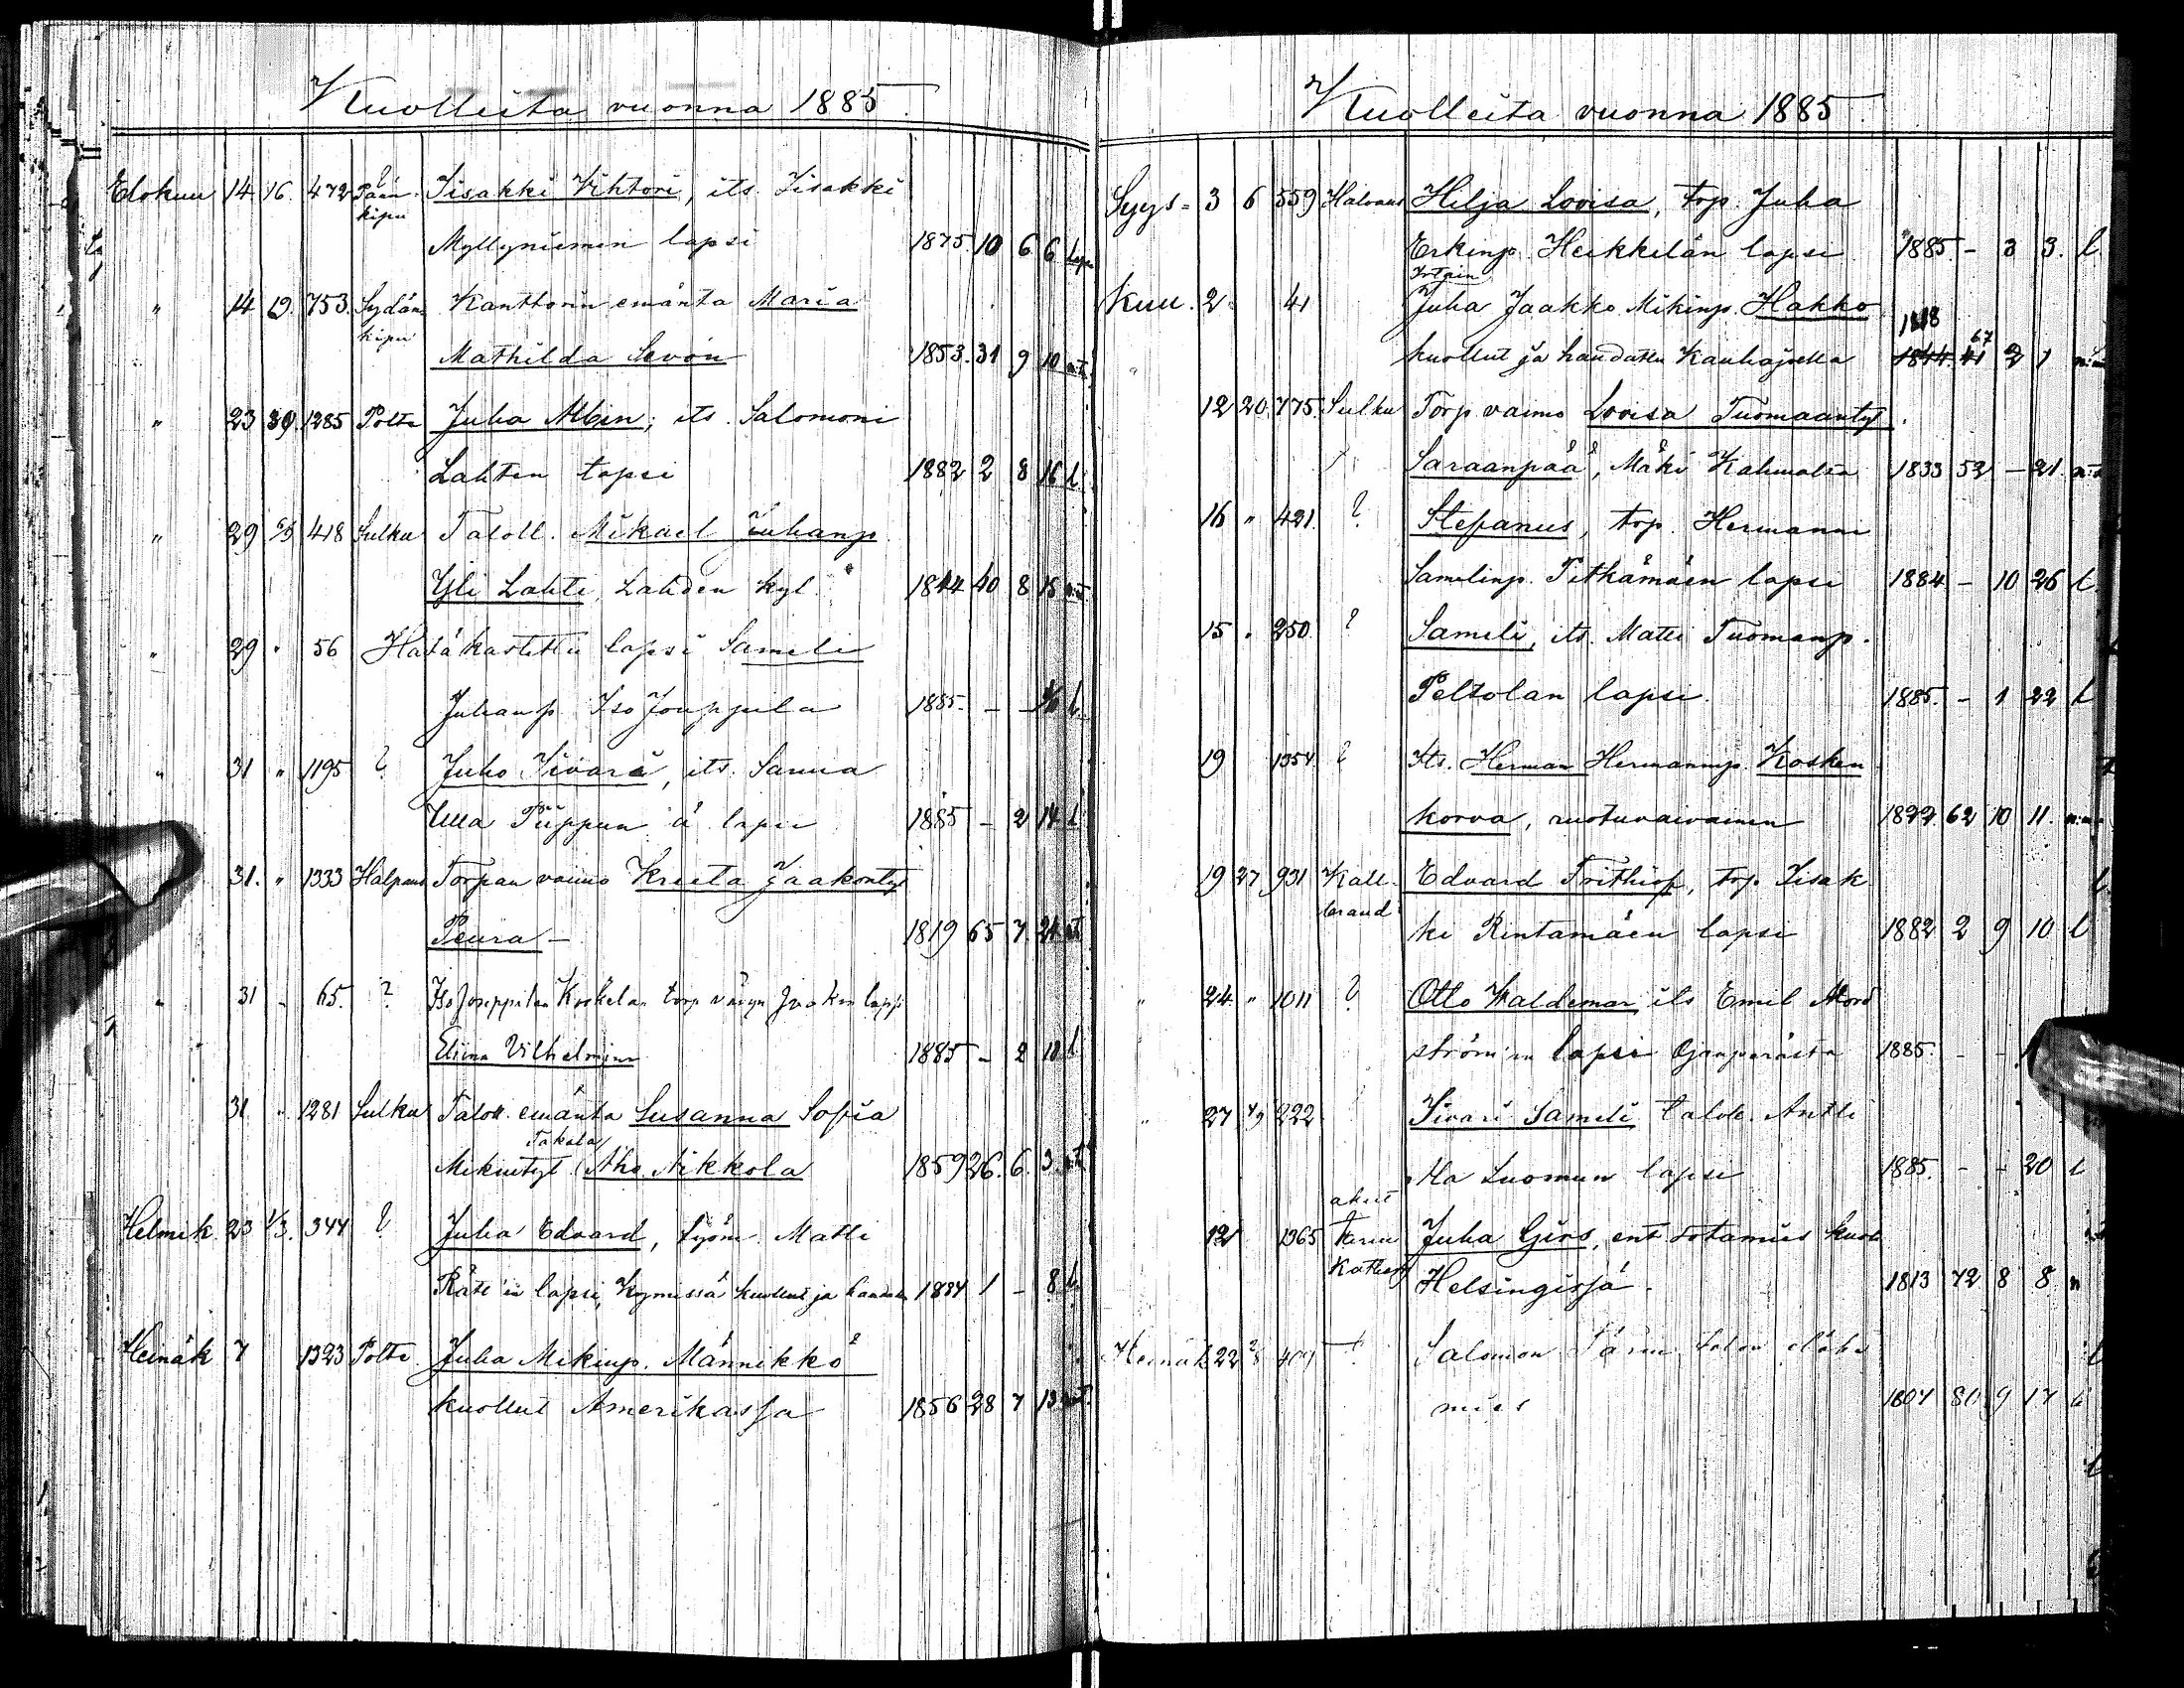 Kuolleita vuonna 1885
Elokuu 14 16. 472 Pään- Iisakki Vihtori, its. Iisakki
kipu
Myllyniemen lapsi 1875. 10 6 6 Lapsi
" 14 19. 753. Sydän- Kanttorin emäntä Maria
kipu
Mathilda Sevón 1853. 31 9 10 n:t.
" 23 30. 1285 Poltt Juha Albin; its. Salomoni
Lahten lapsi 1882 2 8 16 l.
" 29 6/9 418 Sulku Taloll. Mikael Juhanp.
Yli Lahti, Lahden kyl. 1844 40 8 15
" 29 " 56 Hätäkastettu lapsi Sameli
Juhanp. Iso Jouppila 1885. - - l.
" 31 " 1195 ? Juho Iivari, its. Sanna
Ulla Piippun ä lapsi 1885 - 2 14 l
31. " 1333 Halpaus Torpan vaimo Kreeta Jaakontyt
Peura - 1819 65 7. 24 n:t
" 31 - 65. ? Iso Jouppilan Koskelan torp vävyn Jaakon laps
Eliina Vilhelmina 1885 - 2 10 l
31 " 1281 Sulku Taloll. emäntä Susanna Sofia
Takala
Mikintyt. (Aho Nikkola 1859 26. 6. 3. n:t
Helmik. 23 1/3. 344 ? Juha Edvard, työm. Matti
Rät'in lapsi, Kymissä kuollut ja haudattu 1884 1 - 8 l.
Heinäk 7 1323 Poltt. Juha Mikinp. Männikkö
kuollut Amerikassa 1856 28 7 13
Kuolleita vuonna 1885
Syys- 3 6 559 Halvaus Hilja Loviisa, trp. Juha
Erkinp. Heikkilän lapsi 1885. - 3 3. l.
Kuu. 2 41 Juha Jaakko Mikinp. Hakko
1818
67
kuollut ja haudattu Kauhajoella 1844. 41 2 1
12 20. 775. Sulku Torp. vaimo Loviisa Tuomaantyt
Saraanpää, Mäki Kahmalta 1833 52 - 21.
16 " 421. ? Stefanus, trp. Hermanni
Samelinp. Pitkämäen lapsi 1884 - 10 26 l.
15 " 250. ? Sameli, its. Matti Tuomanp.
Peltolan lapsi. 1885. - 1 22 l
19 1354 ? Its. Herman Hermannip. Kosken
korva, ruotuvaivainen 1822. 62 10 11.
19 27 931 Kall- Edvard Frithiof, trp. Iisak
brand
ki Rintamäen lapsi 1882 2 9 10 l
" 24. " 1011 ? Otto Waldemar its Emil Nord
ström'in lapsi Ojanperästä 1885. - -
" 27 4/9 222 Iivari Sameli talok. Antti
Ala Luomun lapsi 1885. - - 20 l
akut
12 1365 tarm Juha Girs, ent. sotamies kuol
Katharr
Helsingissä. 1813 72 8 8. n
Heinäk 22 2/8 409 ? Salomon talon
mies 1804 80 9 17 l